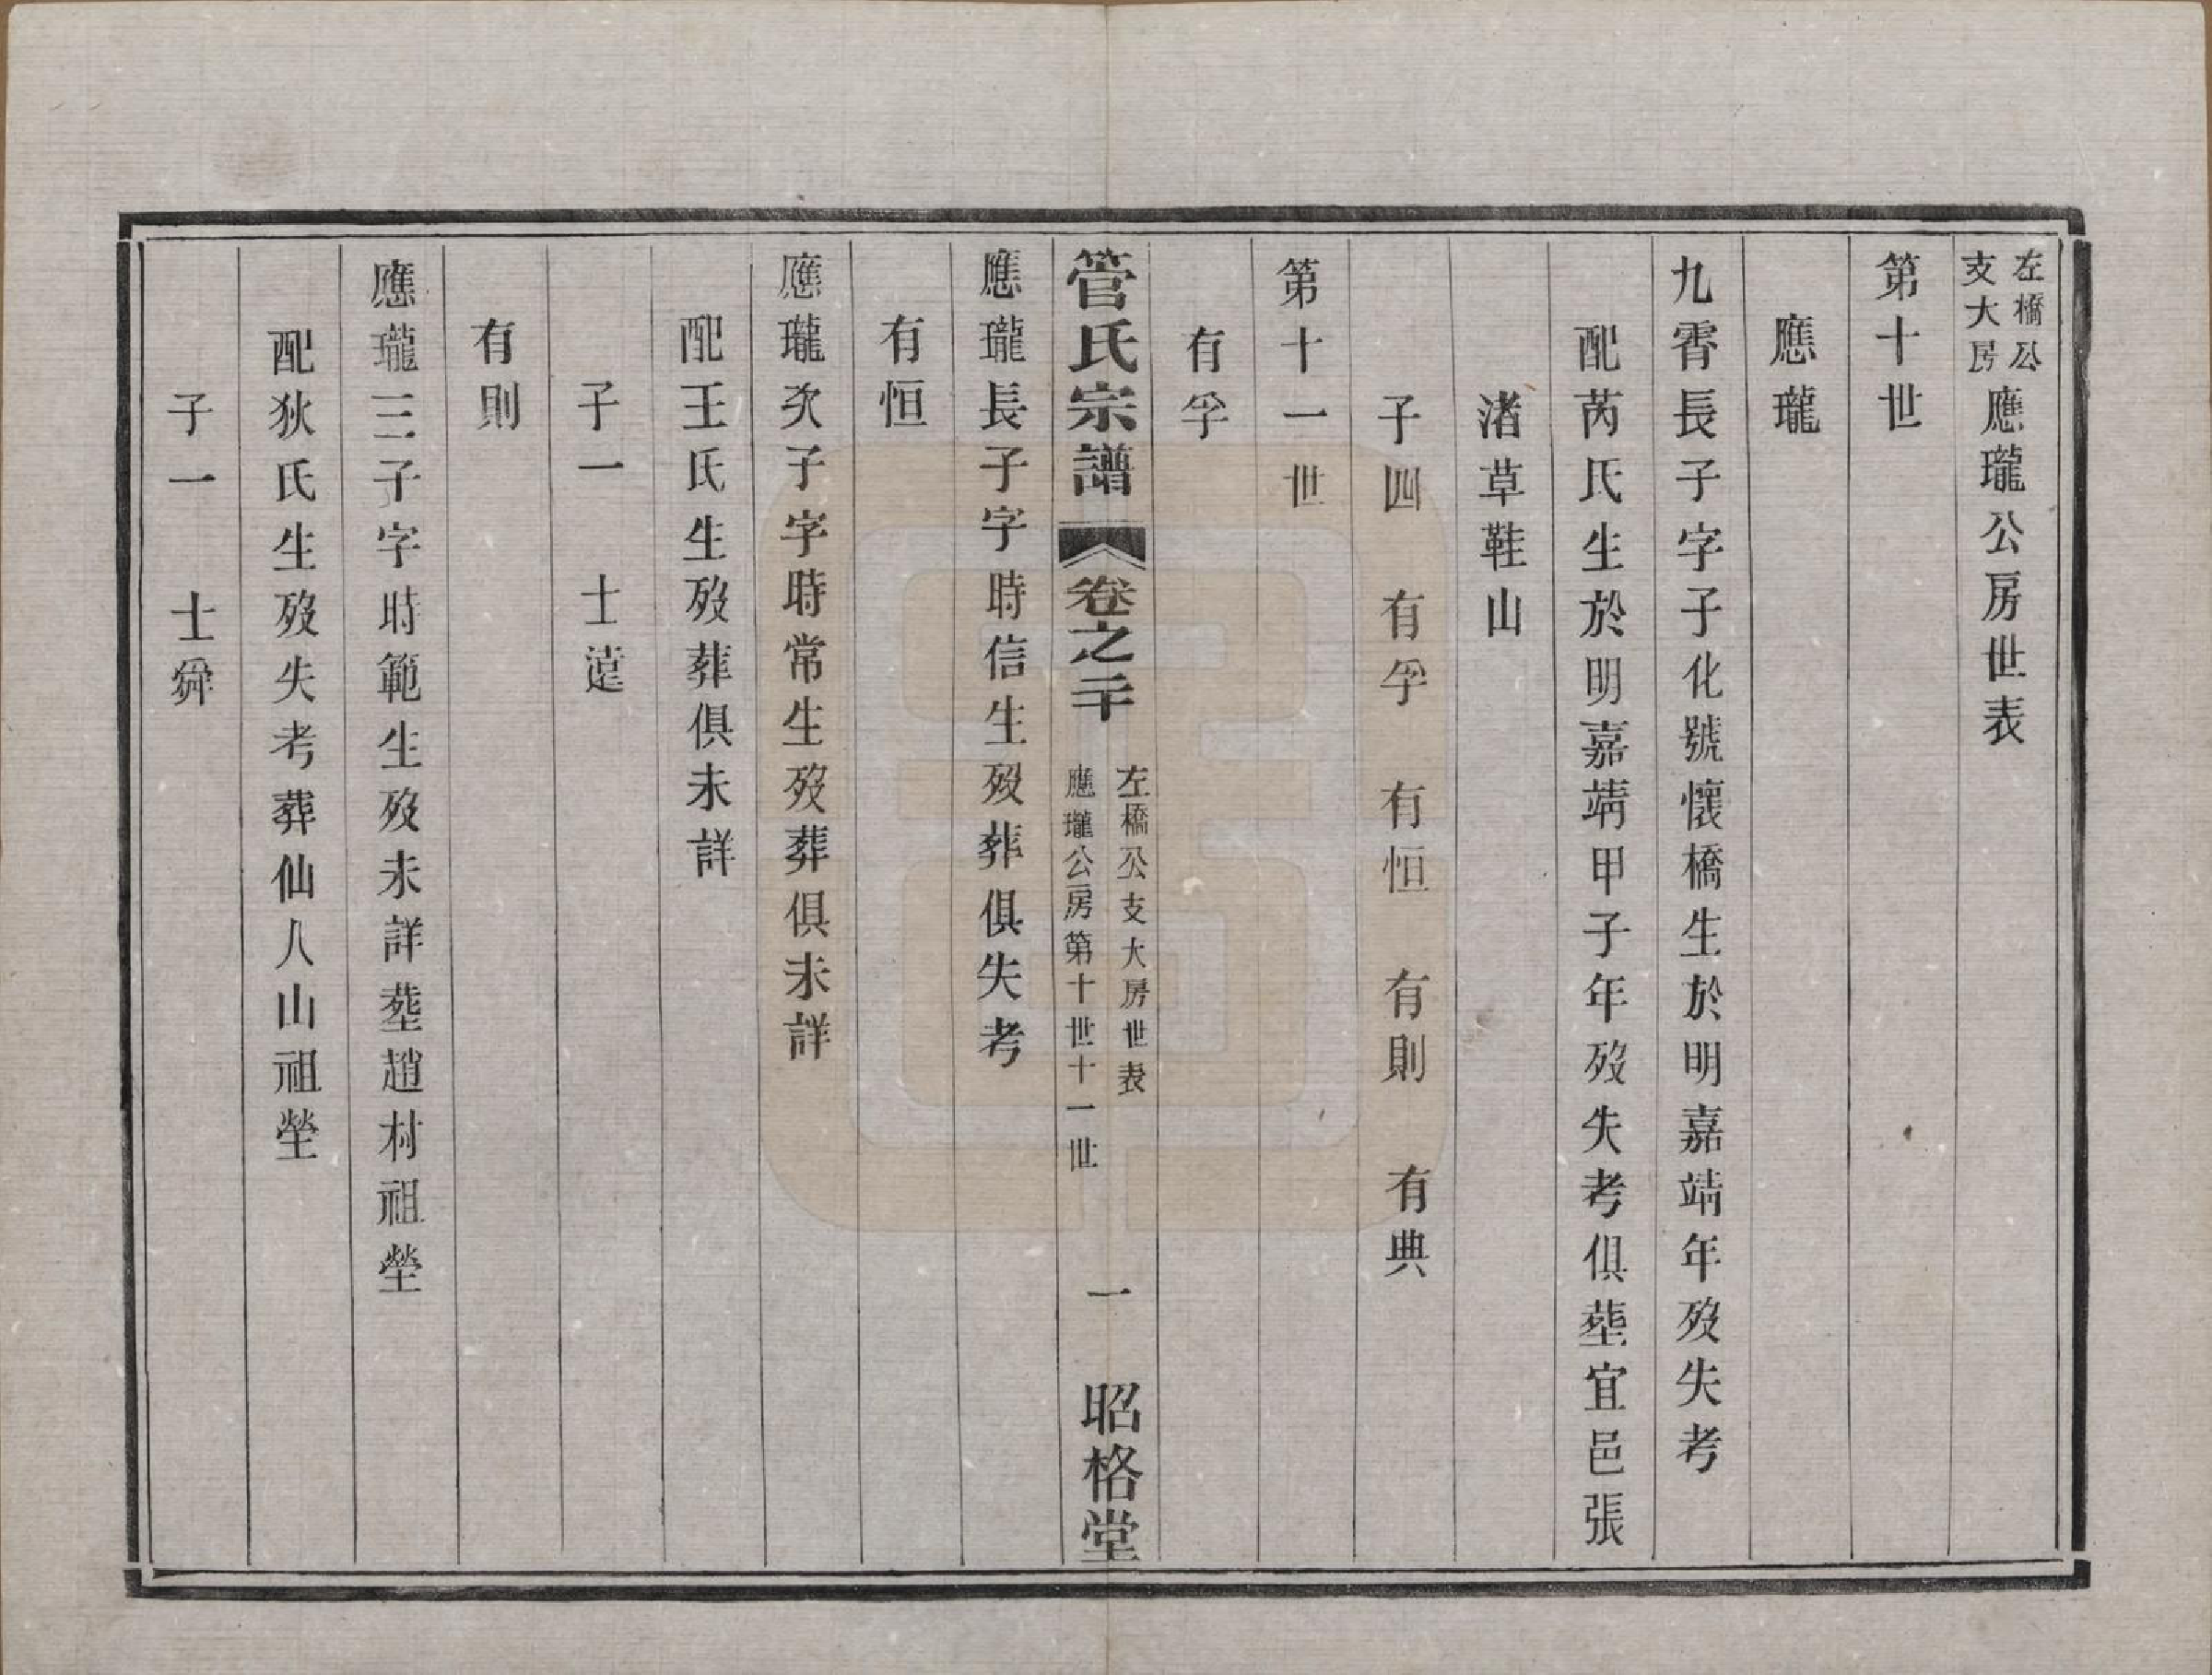 左橋公
支大房
應瓏公房世表
第十世
應瓏
九霄長子字子化號懷橋生於明嘉靖年歿失考
配芮氏生於明嘉靖甲子年歿失考俱塟宜邑張
渚草鞋山
子四　有孚　有恒　有則　有典
第十一世
有孚
管氏宗譜　卷之二十　左橋公支大房世表
應瓏公房第十世十一世　一　昭格堂
應瓏長子字時信生歿葬俱失考
有恒
應瓏次子字時常生歿葬俱未詳
配王氏生歿葬俱未詳
子一　士遠
有則
應瓏三子字時範生歿未詳塟趙村祖塋
配狄氏生歿失考葬仙人山祖塋
子一　士舜